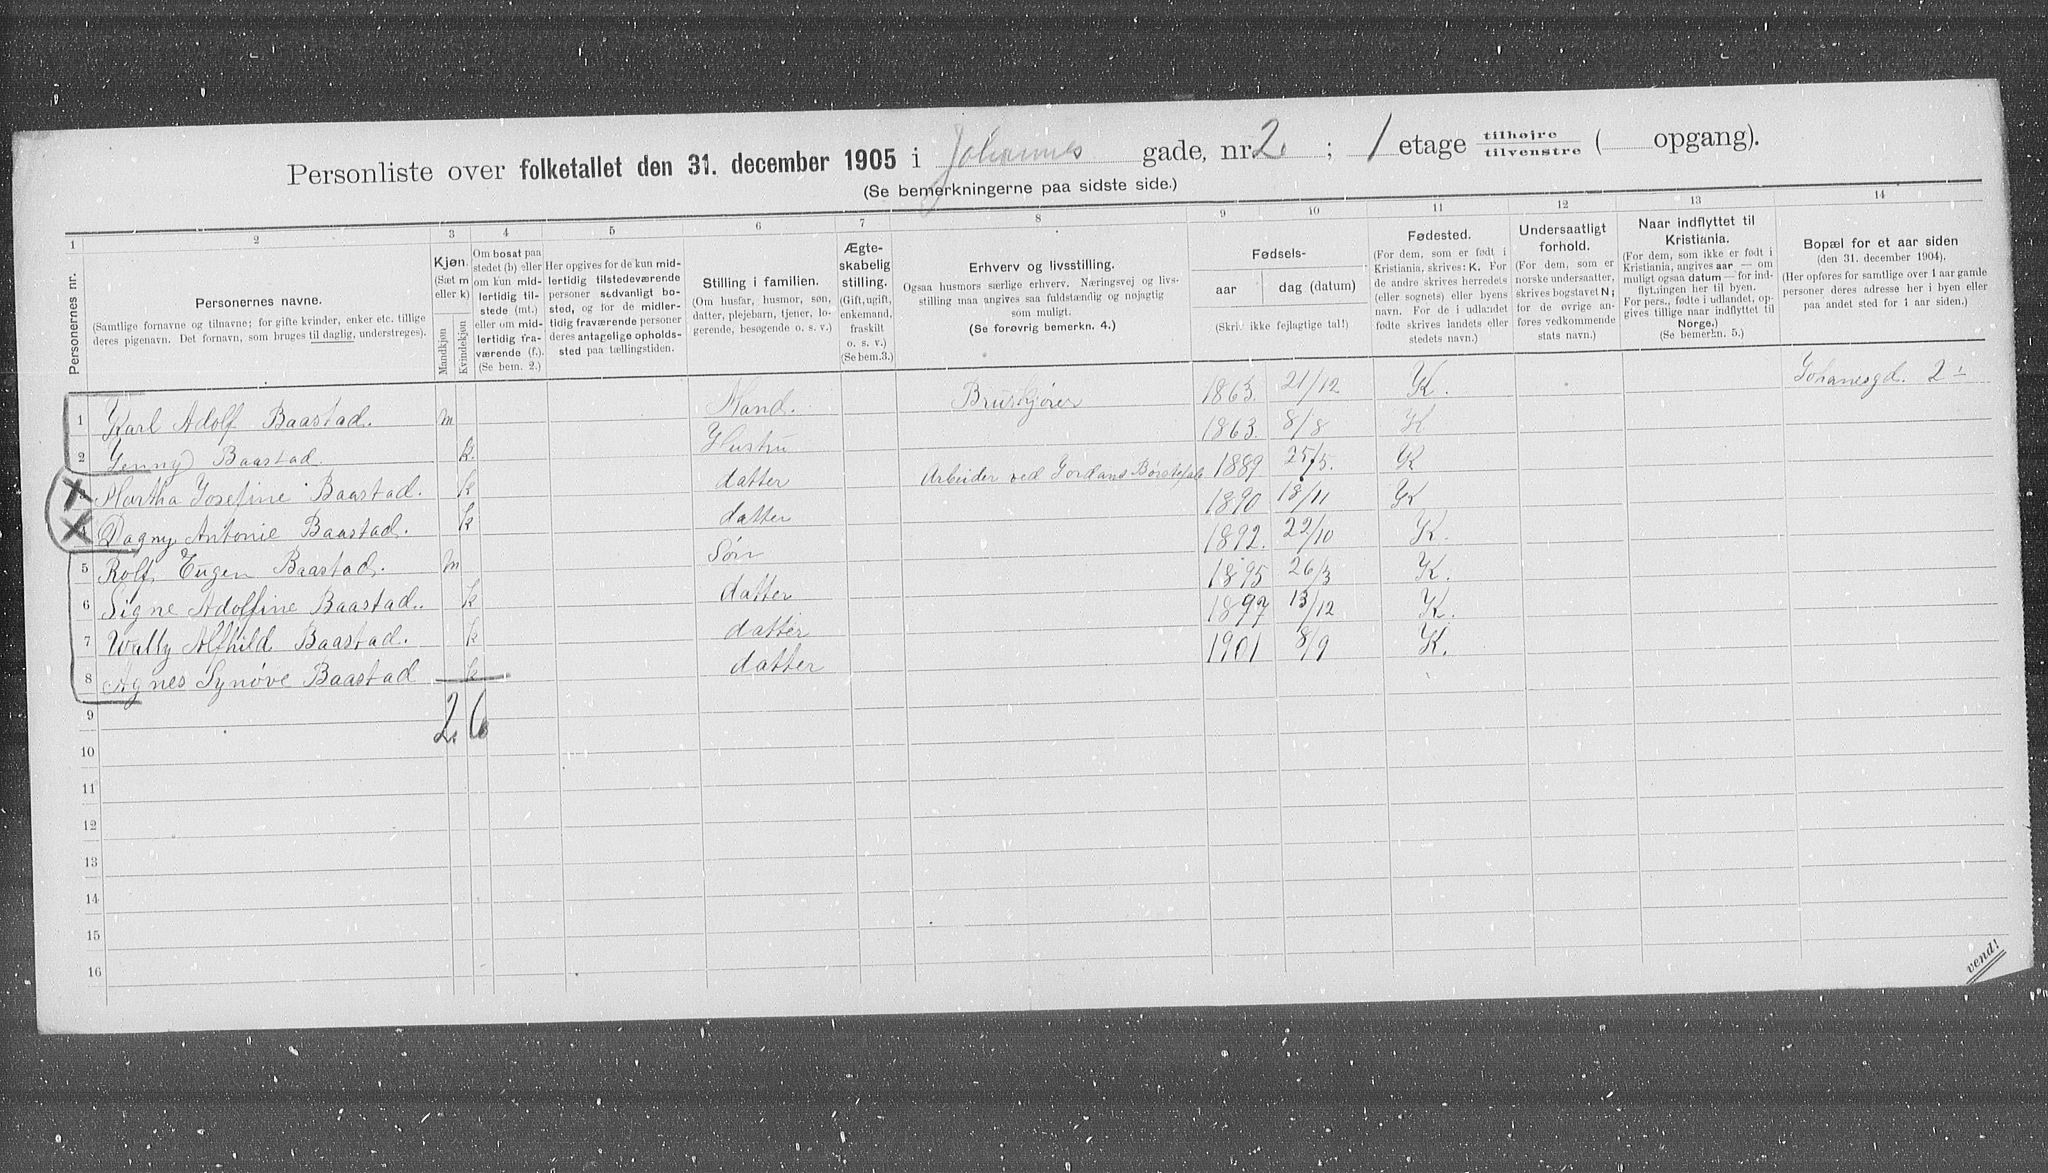 Personliste over folketallet den 31. december 1905 i Johannes gade, nr. 2 ; 1 etage tilhøjre tilvenstre ( opgang).
(Se bemerkningerne paa sidste side.)
1 2 3 4 5 6 7 8 9 10 11 12 13 14
Personernes nr.
Personernes navne.
(Samtlige fornavne og tilnavne; for gifte kvinder, enker etc. tillige
deres pigenavn. Det fornavn, som bruges til daglig, understreges).
Kjøn.
(Sæt m
eller k)
Mandkjøn
Kvindekjøn
Om bosat paa
stedet (b) eller
om kun mid-
lertidig til-
stede (mt.)
eller om mid-
lertidig fra-
værende (f.).
(Se bem. 2.)
Her opgives for de kun mid-
lertidig tilstedeværende
personer sedvanligt bo-
sted, og for de midler-
tidig fraværende personer
deres antagelige opholds-
sted paa tællingstiden.
Stilling i familien.
(Om husfar, husmor, søn,
datter, plejebarn, tjener, lo-
gerende, besøgende o. s. v.)
Ægte-
skabelig
stilling.
(Gift, ugift,
enkemand,
fraskilt
o. s. v.)
(Se bem.3.)
Erhverv og livsstilling.
Ogsaa husmors særlige erhverv. Næringsvej og livs-
stilling maa angives saa fuldstændig og nøjagtig
som muligt.
(Se forøvrig bemerkn. 4.)
Fødsels-
aar dag (datum)
(Skriv ikke fejlagtige tal!)
Fødested.
(For dem, som er født i
Kristiania, skrives: K. For
de andre skrives herredets
(eller sognets) eller byens
navn. For de i udlandet
fødte skrives landets eller
stedets navn.)
Undersaatligt
forhold.
(For dem, som er
norske undersaatter,
skrives bogstavet N;
for de øvrige an-
føres vedkommende
stats navn.)
Naar indflyttet til
Kristiania.
(For dem, som ikke er født i
Kristiania, angives aar — om
muligt ogsaa datum — for ind-
flytningen her til byen.
For pers., fødte i udlandet, op-
gives tillige naar indflyttet til
Norge.)
(Se bemerkn. 5.)
Bopæl for et aar siden
(den 31. december 1904).
(Her opføres for samtlige over 1 aar gamle
personer deres adresse her i byen eller
paa andet sted for 1 aar siden.)
1 Karl Adolf Baastad. m Mand. Bruskjører 1863. 21/12 K. Johanesgd. 2 1
2 Jenny Baastad k. Hustru 1863. 8/8 K
Martha Josefine Baastad. k datter Arbeider ved Jordans Børstefab 1889 25/5. K
4 Dagny Antonie Baastad. k datter 1890 18/11 K
5 Rolf Eugen Baastad. m Søn 1892. 22/10 K.
6 Signe Adolfine Baastad. k datter 1895 26/3 K.
7 Wally Alfhild Baastad. k datter 1897 13/12 K.
8 Agnes Synøve Baastad k datter 1901 8/9 K.
9 2. 6
10
11
12
13
14
15
16
vend!